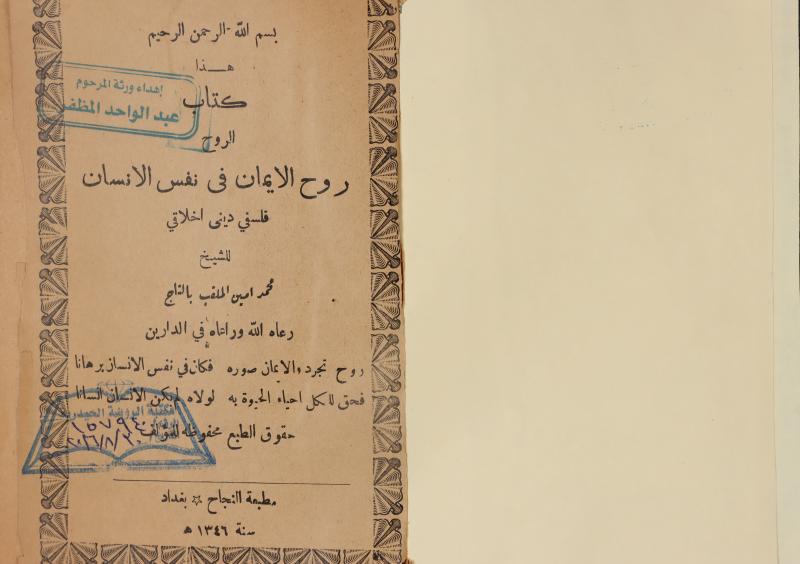 بسم الله الرحمن الرحيم
هـــذا
كتاب
اهداء ورثة المرحوم
عبد الواحد المظفر
الروح
روح الايمان فى نفس الانسان
فلسفي دينى اخلاقي
للشيخ
محمد امين الملقب بالتاج
رعاه الله وراتاه في الدارين
روح تجرد والايمان صوره فكان في نفس الانسان برهانا
فحق للكل احياء الحيوة به لولاه لم يكن الانسان انسانا
مكتبة الروضة الحيدرية
حقوق الطبع محفوظة للمؤلف
مطبعة النجاح ☆ بغداد
سنة ١٣٤٦ ه